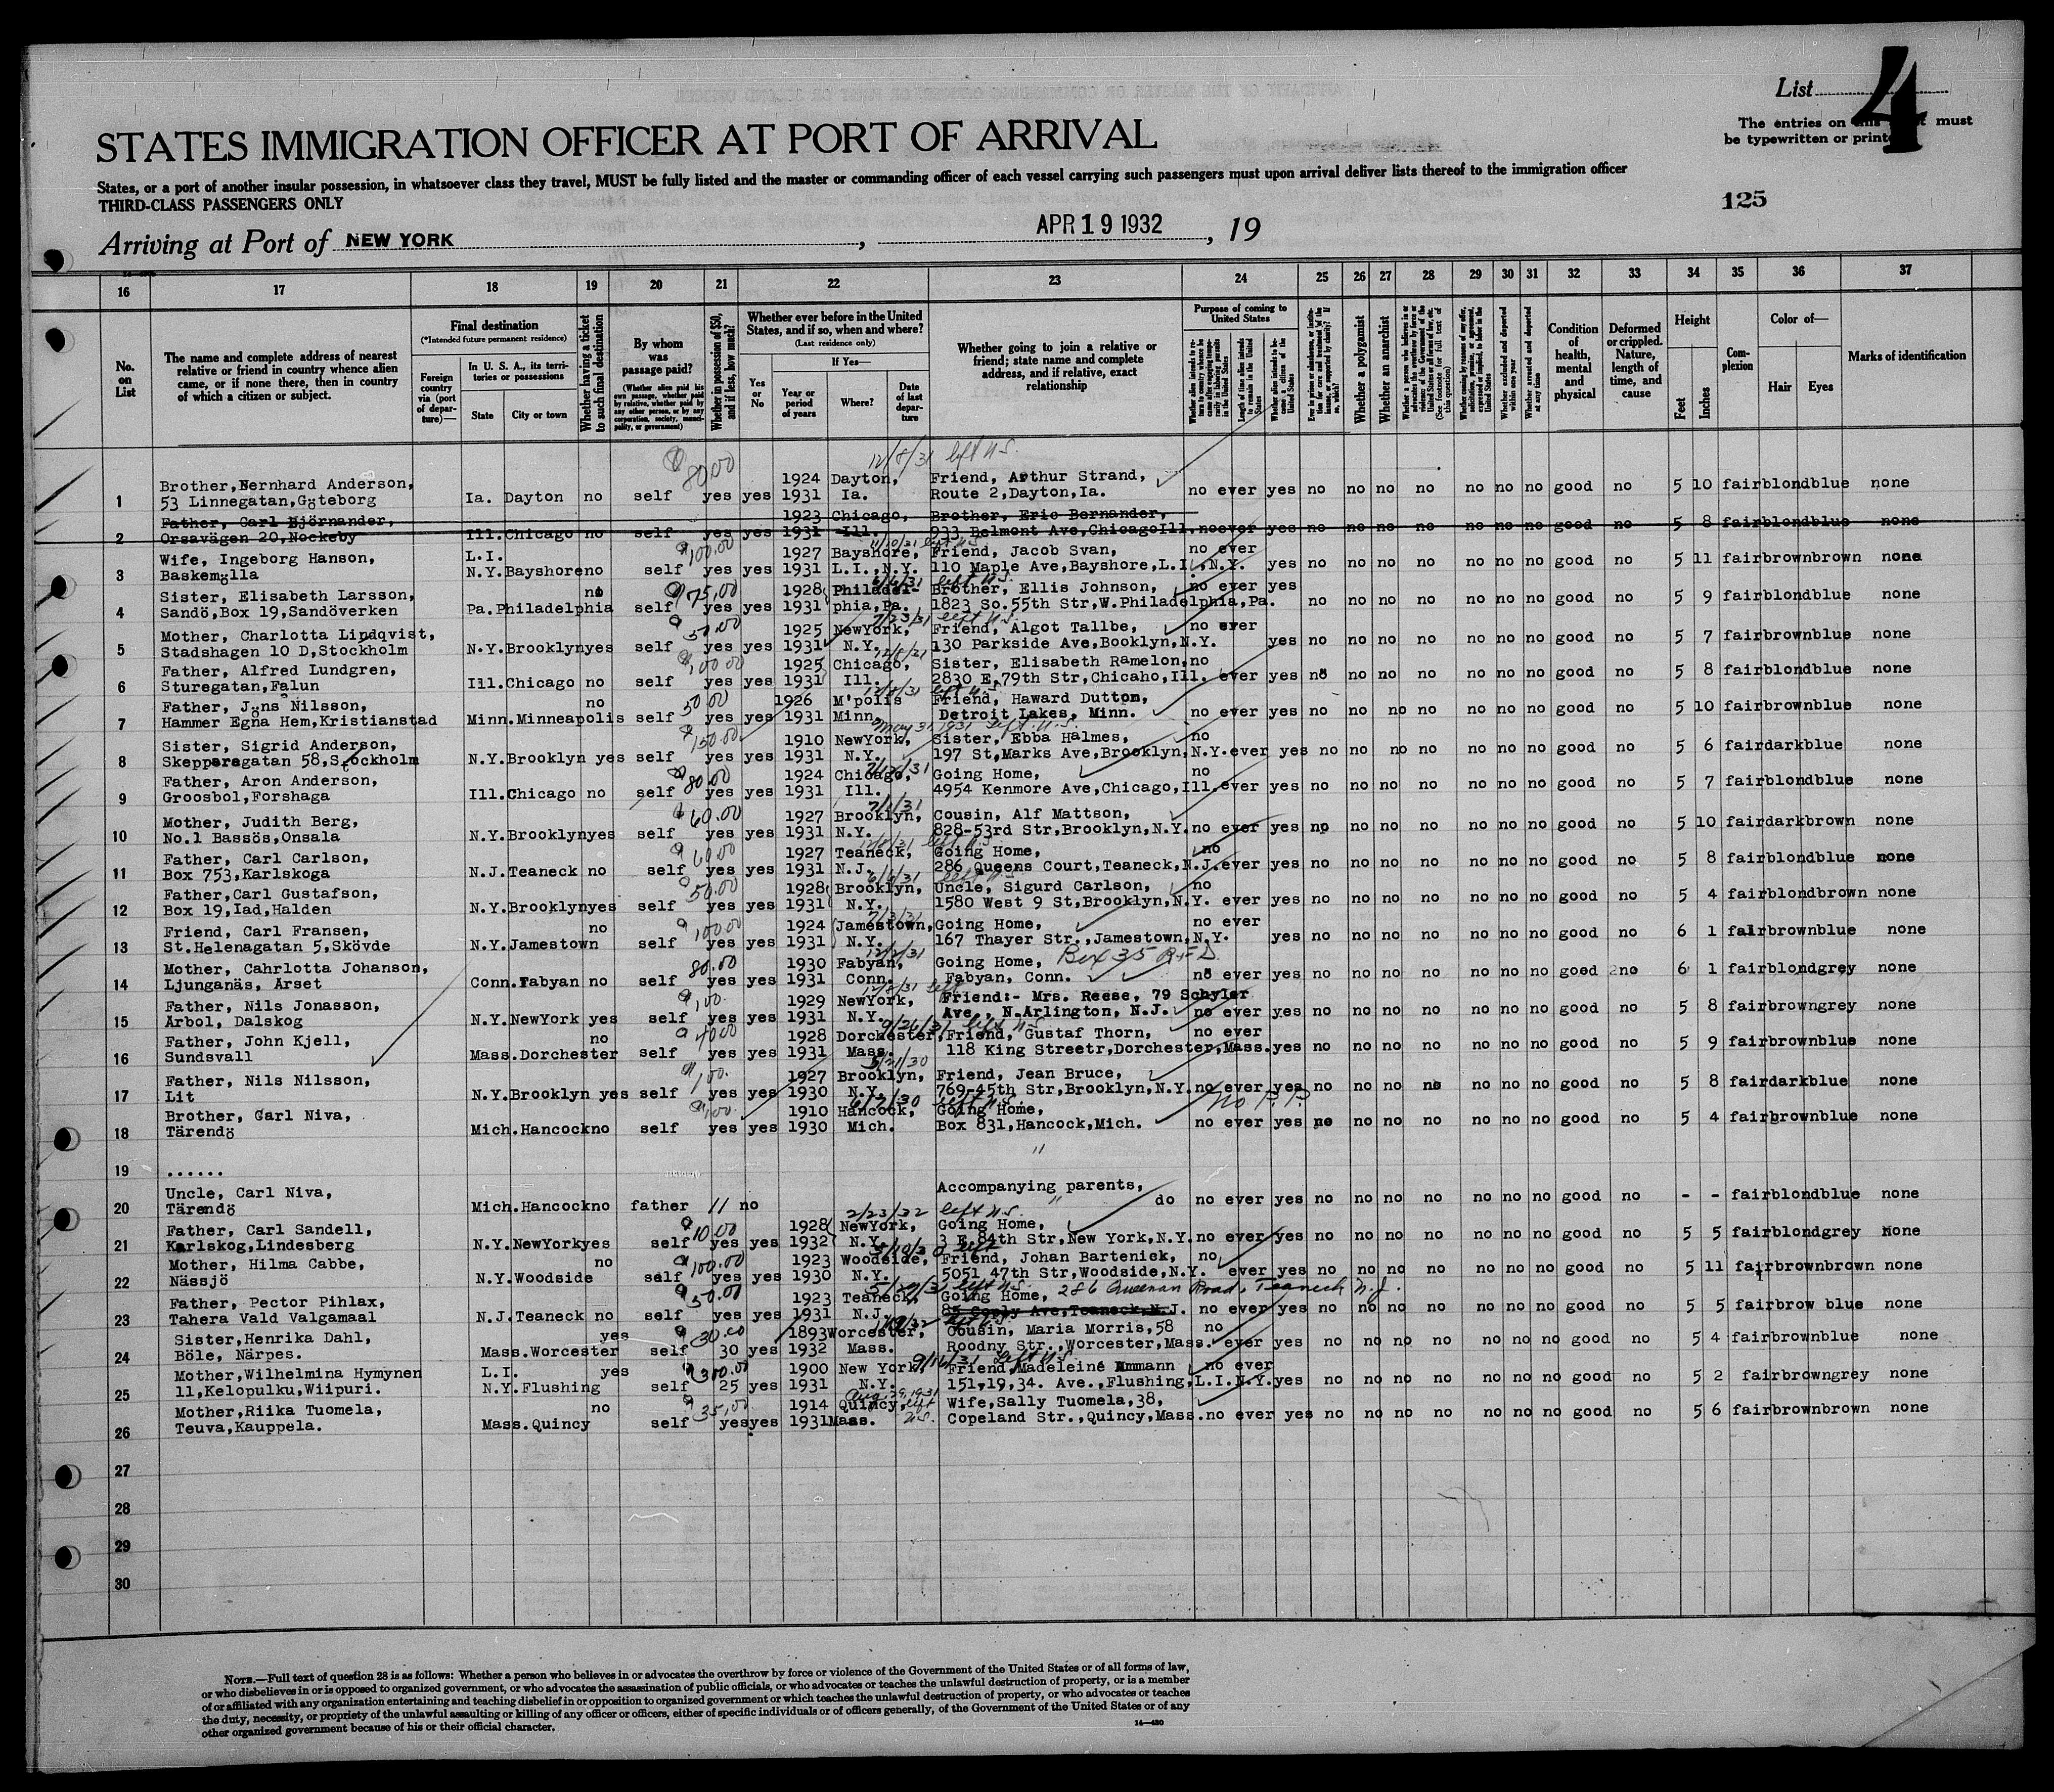 List 4
The entries on this must
be typewritten or printed
STATES IMMIGRATION OFFICER AT PORT OF ARRIVAL
States, or a port of another insular possession, in whatsoever class they travel, MUST be fully listed and the master or commanding officer of each vessel carrying such passengers must upon arrival deliver lists thereof to the immigration officer
THIRD-CLASS PASSENGERS ONLY
125
Arriving at Port of NEW YORK, APR 19 1932, 19
16 17 18 19 20 21 22 23 24 25 26 27 28 29 30 31 32 33 34 35 36 37
No. on List
The name and complete address of nearest relative or friend in country whence alien came, or if none there, then in country of which a citizen or subject.
Final destination
(*Intended future permanent residence)
Foreign country via (port of departure)—
In U. S. A., its territories or possessions
State City or town
Whether having a ticket to such final destination
By whom was passage paid?
(Whether alien paid his own passage, whether paid by relative, whether paid by any other person, or by any corporation, society, municipality, or government)
Whether in possession of $50, and if less, how much?
Whether ever before in the United States, and if so, when and where?
(Last residence only)
Yes or No
If Yes—
Year or period of years Where? Date of last departure
Whether going to join a relative or friend; state name and complete address, and if relative, exact relationship
Purpose of coming to United States
Whether a polygamist
Whether an anarchist
Condition of health, mental and physical
Deformed or crippled. Nature, length of time, and cause
Height
Feet Inches
Complexion
Color of—
Hair Eyes
Marks of identification
80.00 12/8/31 left U.S.
Brother, Bernhard Anderson, 1924 Dayton, Friend, Arthur Strand,
1 53 Linnegatan,Göteborg Ia. Dayton no self yes yes 1931 Ia. Route 2,Dayton,Ia. no ever yes no no no no no no no good no 5 10 fair blond blue none
Father, Carl Björnander, 1923 Chicago, Brother, Eric Bernander,
2 Orsavägen 20,Nockeby Ill.Chicago no self yes yes 1931 Ill. 933 Belmont Ave,Chicago Ill. no ever yes no no no no no no no good no 5 8 fair blond blue none
100.00
Wife, Ingeborg Hanson, L.I. 1927 Bayshore, Friend, Jacob Svan, no ever
3 Baskemölla N.Y.Bayshore no self yes yes 1931 L.I.,N.Y. 110 Maple Ave,Bayshore,L.I.,N.Y. yes no no no no no no no good no 5 11 fair brown brown none
75.00 left U.S.
Sister, Elisabeth Larsson, no 1928 Philadel- Brother, Ellis Johnson, no ever yes
4 Sandö,Box 19,Sandöverken Pa.Philadelphia self yes yes 1931 phia,Pa. 1823 So.55th Str,W.Philadelphia,Pa. no no no no no no no good no 5 9 fair blond blue none
50.00 7/23/31 left U.S.
Mother, Charlotta Lindqvist, 1925 NewYork, Friend, Algot Tallbe, no ever
5 Stadshagen 10 D,Stockholm N.Y.Brooklyn yes self yes yes 1931 N.Y. 130 Parkside Ave,Booklyn,N.Y. yes no no no no no no no good no 5 7 fair brown blue none
100.00
Father, Alfred Lundgren, 1925 Chicago, Sister, Elisabeth Ramelon, no
6 Sturegatan,Falun Ill.Chicago no self yes yes 1931 Ill. 2830 E,79th Str,Chicaho,Ill. ever yes no no no no no no no good no 5 8 fair blond blue none
50.00 12/8/31 left U.S.
Father, Jöns Nilsson, no 1926 M'polis Friend, Haward Dutton,
7 Hammer Egna Hem,Kristianstad Minn.Minneapolis self yes yes 1931 Minn. Detroit Lakes, Minn. no ever yes no no no no no no no good no 5 10 fair brown blue none
150.00 May 31, 1931 left U.S.
Sister, Sigrid Anderson, 1910 NewYork, Sister, Ebba Halmes, no
8 Skepparegatan 58,Stockholm N.Y.Brooklyn yes self yes yes 1931 N.Y. 197 St,Marks Ave,Brooklyn,N.Y. ever yes no no no no no no no good no 5 6 fair dark blue none
80.00
Father, Aron Anderson, 1924 Chicago, Going Home, no
9 Groosbol,Forshaga Ill.Chicago no self yes yes 1931 Ill. 4954 Kenmore Ave,Chicago,Ill. ever yes no no no no no no no good no 5 7 fair blond blue none
60.00 7/1/31
Mother, Judith Berg, 1927 Brooklyn, Cousin, Alf Mattson,
10 No.1 Bassös,Onsala N.Y.Brooklyn yes self yes yes 1931 N.Y. 828-53rd Str,Brooklyn,N.Y. no ever yes no no no no no no no good no 5 10 fair dark brown none
60.00 left U.S.
Father, Carl Carlson, 1927 Teaneck, Going Home, no
11 Box 753,Karlskoga N.J.Teaneck no self yes yes 1931 N.J. 286 Queens Court,Teaneck,N.J. ever yes no no no no no no no good no 5 8 fair blond blue none
50.00 6/6/31 left U.S.
Father,Carl Gustafson, 1928 Brooklyn, Uncle, Sigurd Carlson, no
12 Box 19,Iad,Halden N.Y.Brooklyn yes self yes yes 1931 N.Y. 1580 West 9 St,Brooklyn,N.Y. ever yes no no no no no no no good no 5 4 fair blond brown none
100.00 7/3/31
Friend, Carl Fransen, no 1924 Jamestown, Going Home, no ever
13 St.Helenagatan 5,Skövde N.Y.Jamestown self yes yes 1931 N.Y. 167 Thayer Str.,Jamestown,N.Y. yes no no no no no no no good no 6 1 fair brown blue none
80.00 12/2/31 Box 35 R.F.D.
Mother, Cahrlotta Johanson, 1930 Fabyan, Going Home,
14 Ljunganäs, Arset Conn.Fabyan no self yes yes 1931 Conn. Fabyan, Conn. no ever yes no no no no no no no good no 6 1 fair blond grey none
100. 12/8/31 left
Father, Nils Jonasson, 1929 NewYork, Friend:- Mrs. Reese, 79 Schyler
15 Arbol, Dalskog N.Y.NewYork yes self yes yes 1931 N.Y. Ave., N.Arlington, N.J. no ever yes no no no no no no no good no 5 8 fair brown grey none
40.00 9/26/31 left U.S.
Father, John Kjell, no 1928 Dorchester, Friend, Gustaf Thorn, no ever
16 Sundsvall Mass.Dorchester self yes yes 1931 Mass. 118 King Streetr,Dorchester,Mass. yes no no no no no no no good no 5 9 fair brown blue none
100. 5/21/30
Father, Nils Nilsson, 1927 Brooklyn, Friend, Jean Bruce,
17 Lit N.Y.Brooklyn yes self yes yes 1930 N.Y. 769-45th Str,Brooklyn,N.Y. no ever yes no no no no no no no good no 5 8 fair dark blue none
100. 6/2/30 left U.S. No P.P.
Brother, Carl Niva, 1910 Hancock, Going Home,
18 Tärendö Mich.Hancock no self yes yes 1930 Mich. Box 831,Hancock,Mich. no ever yes no no no no no no no good no 5 4 fair brown blue none
19 ...... "
Uncle, Carl Niva, Accompanying parents,
20 Tärendö Mich.Hancock no father 11 no " do no ever yes no no no no no no no good no - - fair blond blue none
10.00 2/23/32 left U.S.
Father, Carl Sandell, 1928 NewYork, Going Home,
21 Karlskog,Lindesberg N.Y.NewYork yes self yes yes 1932 N.Y. 3 E,84th Str,New York,N.Y. no ever yes no no no no no no no good no 5 5 fair blond grey none
100.00 left
Mother, Hilma Cabbe, no 1923 Woodside, Friend, Johan Bartenick, no
22 Nässjö N.Y.Woodside self yes yes 1930 N.Y. 5051 47th Str,Woodside,N.Y. ever yes no no no no no no no good no 5 11 fair brown brown none
50.00 left U.S.
Father, Pector Pihlax, 1923 Teaneck, Going Home, 286 Queen Road, Teaneck N.J.
23 Tahera Vald Valgamaal N.J.Teaneck no self yes yes 1931 N.J. 85 Coply Ave,Teaneck,N.J. no ever yes no no no no no no no good no 5 5 fair brow blue none
30.00
Sister,Henrika Dahl, yes 1893 Worcester, Cousin, Maria Morris,58 no
24 Böle, Närpes. Mass.Worcester self 30 yes 1932 Mass. Roodny Str.,Worcester,Mass. ever yes no no no no no no no good no 5 4 fair brown blue none
300.00 9/16/31 left U.S.
Mother,Wilhelmina Hymynen L.I. yes 1900 New York, Friend,Madeleine Ammann no ever
25 11,Kelopulku,Wiipuri. N.Y.Flushing self 25 yes 1931 N.Y. 151,19,34. Ave.,Flushing,L.I.N.Y. yes no no no no no no no good no 5 2 fair brown grey none
35.00 Aug. 29, 1931 left U.S.
Mother,Riika Tuomela, no 1914 Quincy, Wife,Sally Tuomela,38,
26 Teuva,Kauppela. Mass.Quincy self yes yes 1931 Mass. Copeland Str.,Quincy,Mass. no ever yes no no no no no no no good no 5 6 fair brown brown none
27
28
29
30
NOTE.—Full text of question 28 is as follows: Whether a person who believes in or advocates the overthrow by force or violence of the Government of the United States or of all forms of law,
or who disbelieves in or is opposed to organized government, or who advocates the assassination of public officials, or who advocates or teaches the unlawful destruction of property, or is a member
of or affiliated with any organization entertaining and teaching disbelief in or opposition to organized government or which teaches the unlawful destruction of property, or who advocates or teaches
the duty, necessity, or propriety of the unlawful assaulting or killing of any officer or officers, either of specific individuals or of officers generally, of the Government of the United States or of any
other organized government because of his or their official character.
14—430